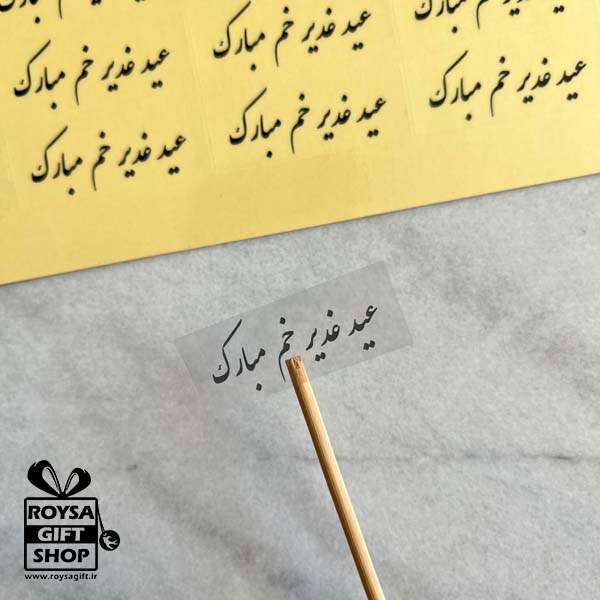 عید غدیر خم مبارک
عید غدیر خم مبارک
عید غدیر خم مبارک
عید غدیر خم مبارک
عید غدیر خم مبارک
عید غدیر خم مبارک
عید غدیر خم مبارک
ROYSA
GIFT
SHOP
www.roysagift.ir